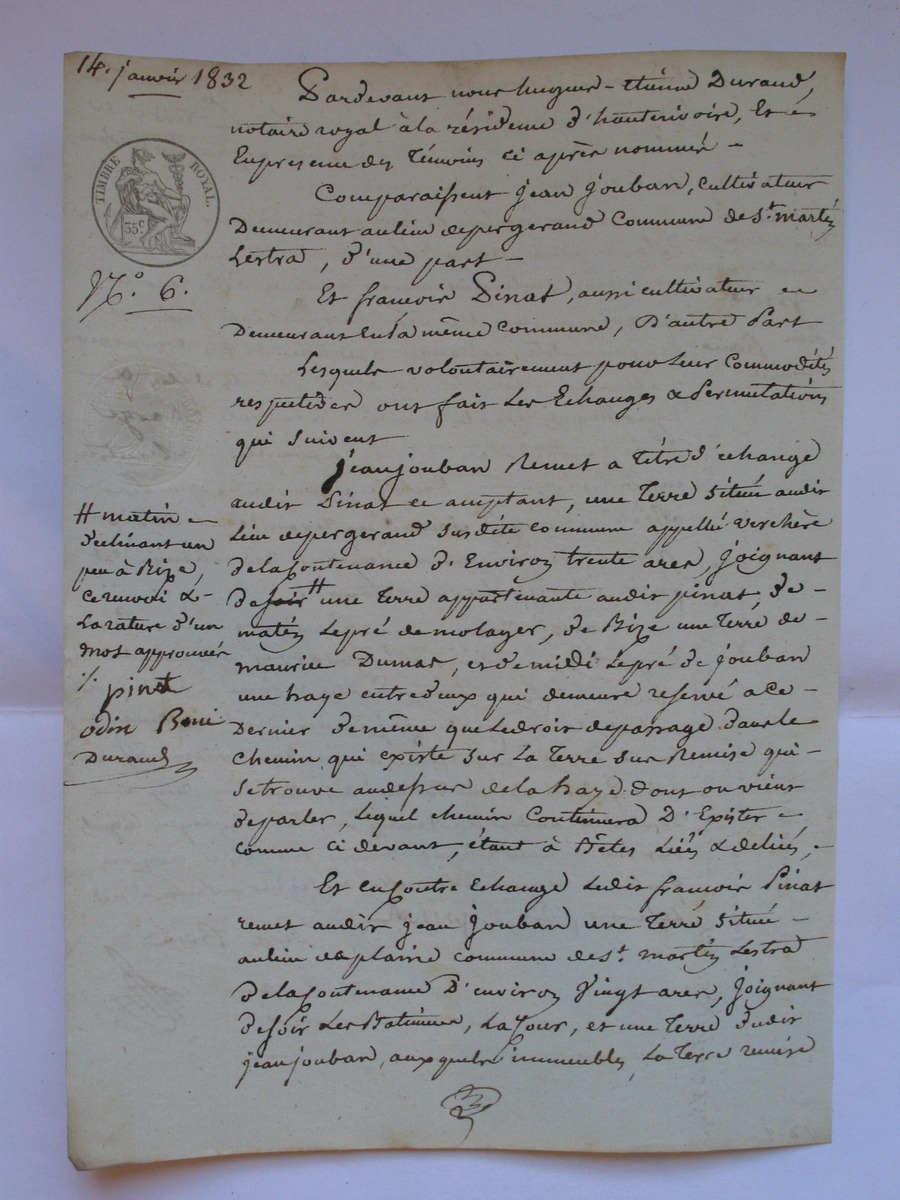 14. janvier 1832
TIMBRE ROYAL.
35c
N.o 6.
Pardevant nous hugues-etienne Durand,
notaire royal à la résidence d'hauterivoire, Et
En presence des Témoins ci après nommés
Comparaissent jean jouban, Cultivateur
Demeurant au lieu de pergerand Commune de St. martin
Lestra, d'une part
Et francois Pinat, aussi cultivateur
Demeurant en la même commune, D'autre Part
Lesquels volontairement pour leur Commodités
respectives ont fait les Echanges & Permutations
qui suivent
jean jouban Remet a Titre d'echange
audit Pinat ce acceptant, une Terre située audit
Lieu de pergerand susdite commune appellé verchère
de la Contenance d'Environ trente ares, joignant
de soir # une Terre appartenante audit pinat, de
matin le pré de molager, de Bize une Terre de
maurice Dumas, et de midi le pré de jouban
une haye entredeux qui demeure reservé a ce
Dernier de même que le droit de passage dans le
chemin qui existe sur la Terre sus Remise qui
se trouve audessus de la haye dont on vient
de parler, lequel chemin Continuera D'Exister
comme ci devant, étant à Bêtes Liées & deliées,
Et en Contre Echange ledit francois Pinat
remet audit jean jouban une Terre située
au lieu de plaine commune de St. martin Lestra
de la Contenance D'environ Vingt ares, joignant
de soir Les Batimens, La Cour, et une Terre dudit
jean jouban, auxquels immeubles, La Terre remise
# matin
declinant un
peu à Bize,
ce renvoi &
La rature d'un
mot approuvés
pinat
odin Beni
Durand